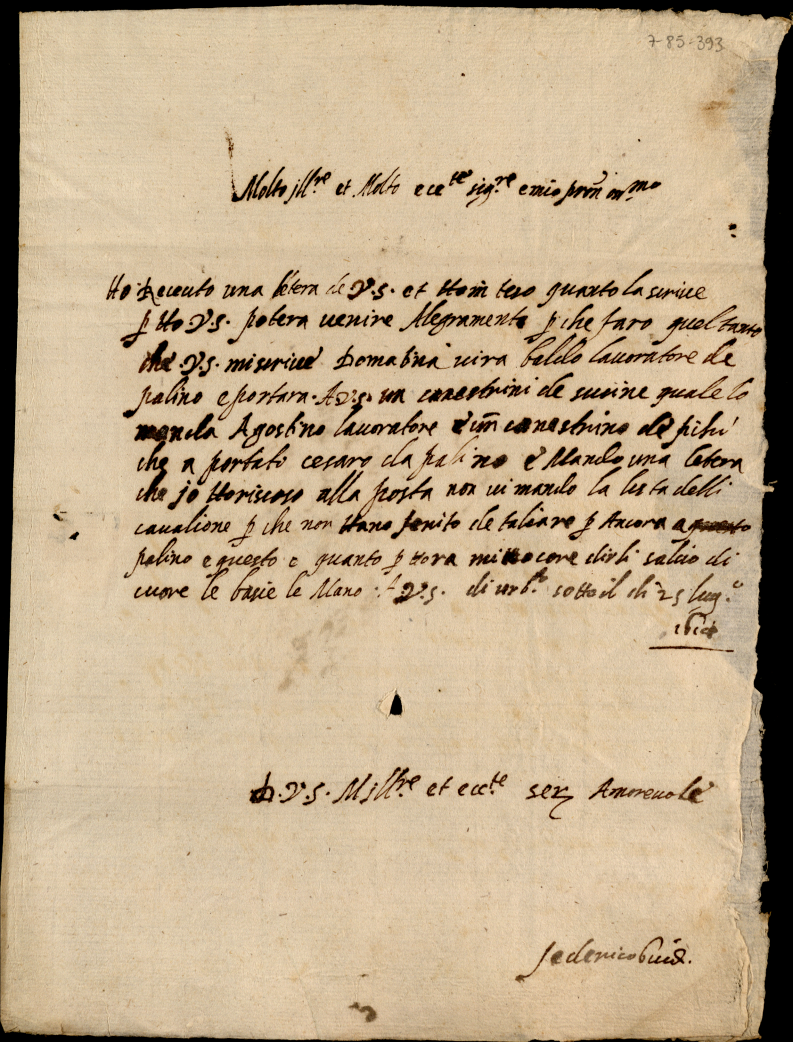 7-85-393
Molto jll.re et Molto ecc.te sig.re e mio pron oss.mo
Ho Receuto una letera de V.S. et Hom teso quanto la scrive
p Ho V.S. potera venire Alegramente p che faro quel tanto
che V.S. mi scrive Domatina vira baldo lavoratore de
palino e portara A V.S. un canestrini de susine quale lo
manda Agostino lavoratore e un canestrino de
che a portati cesaro da palino e Mando una letera
che jo Horiscoso alla posta non vi mando la lista delli
cavalione p che non Hano fenito de taliare p Ancora a questo
palino e questo e quanto p Hora mi di
cuore le basie le Mano A V.S. di urb.o sotto il di 25 lug.o
D.V.S. M jll.re et ecc.te ser Amorevole
federico